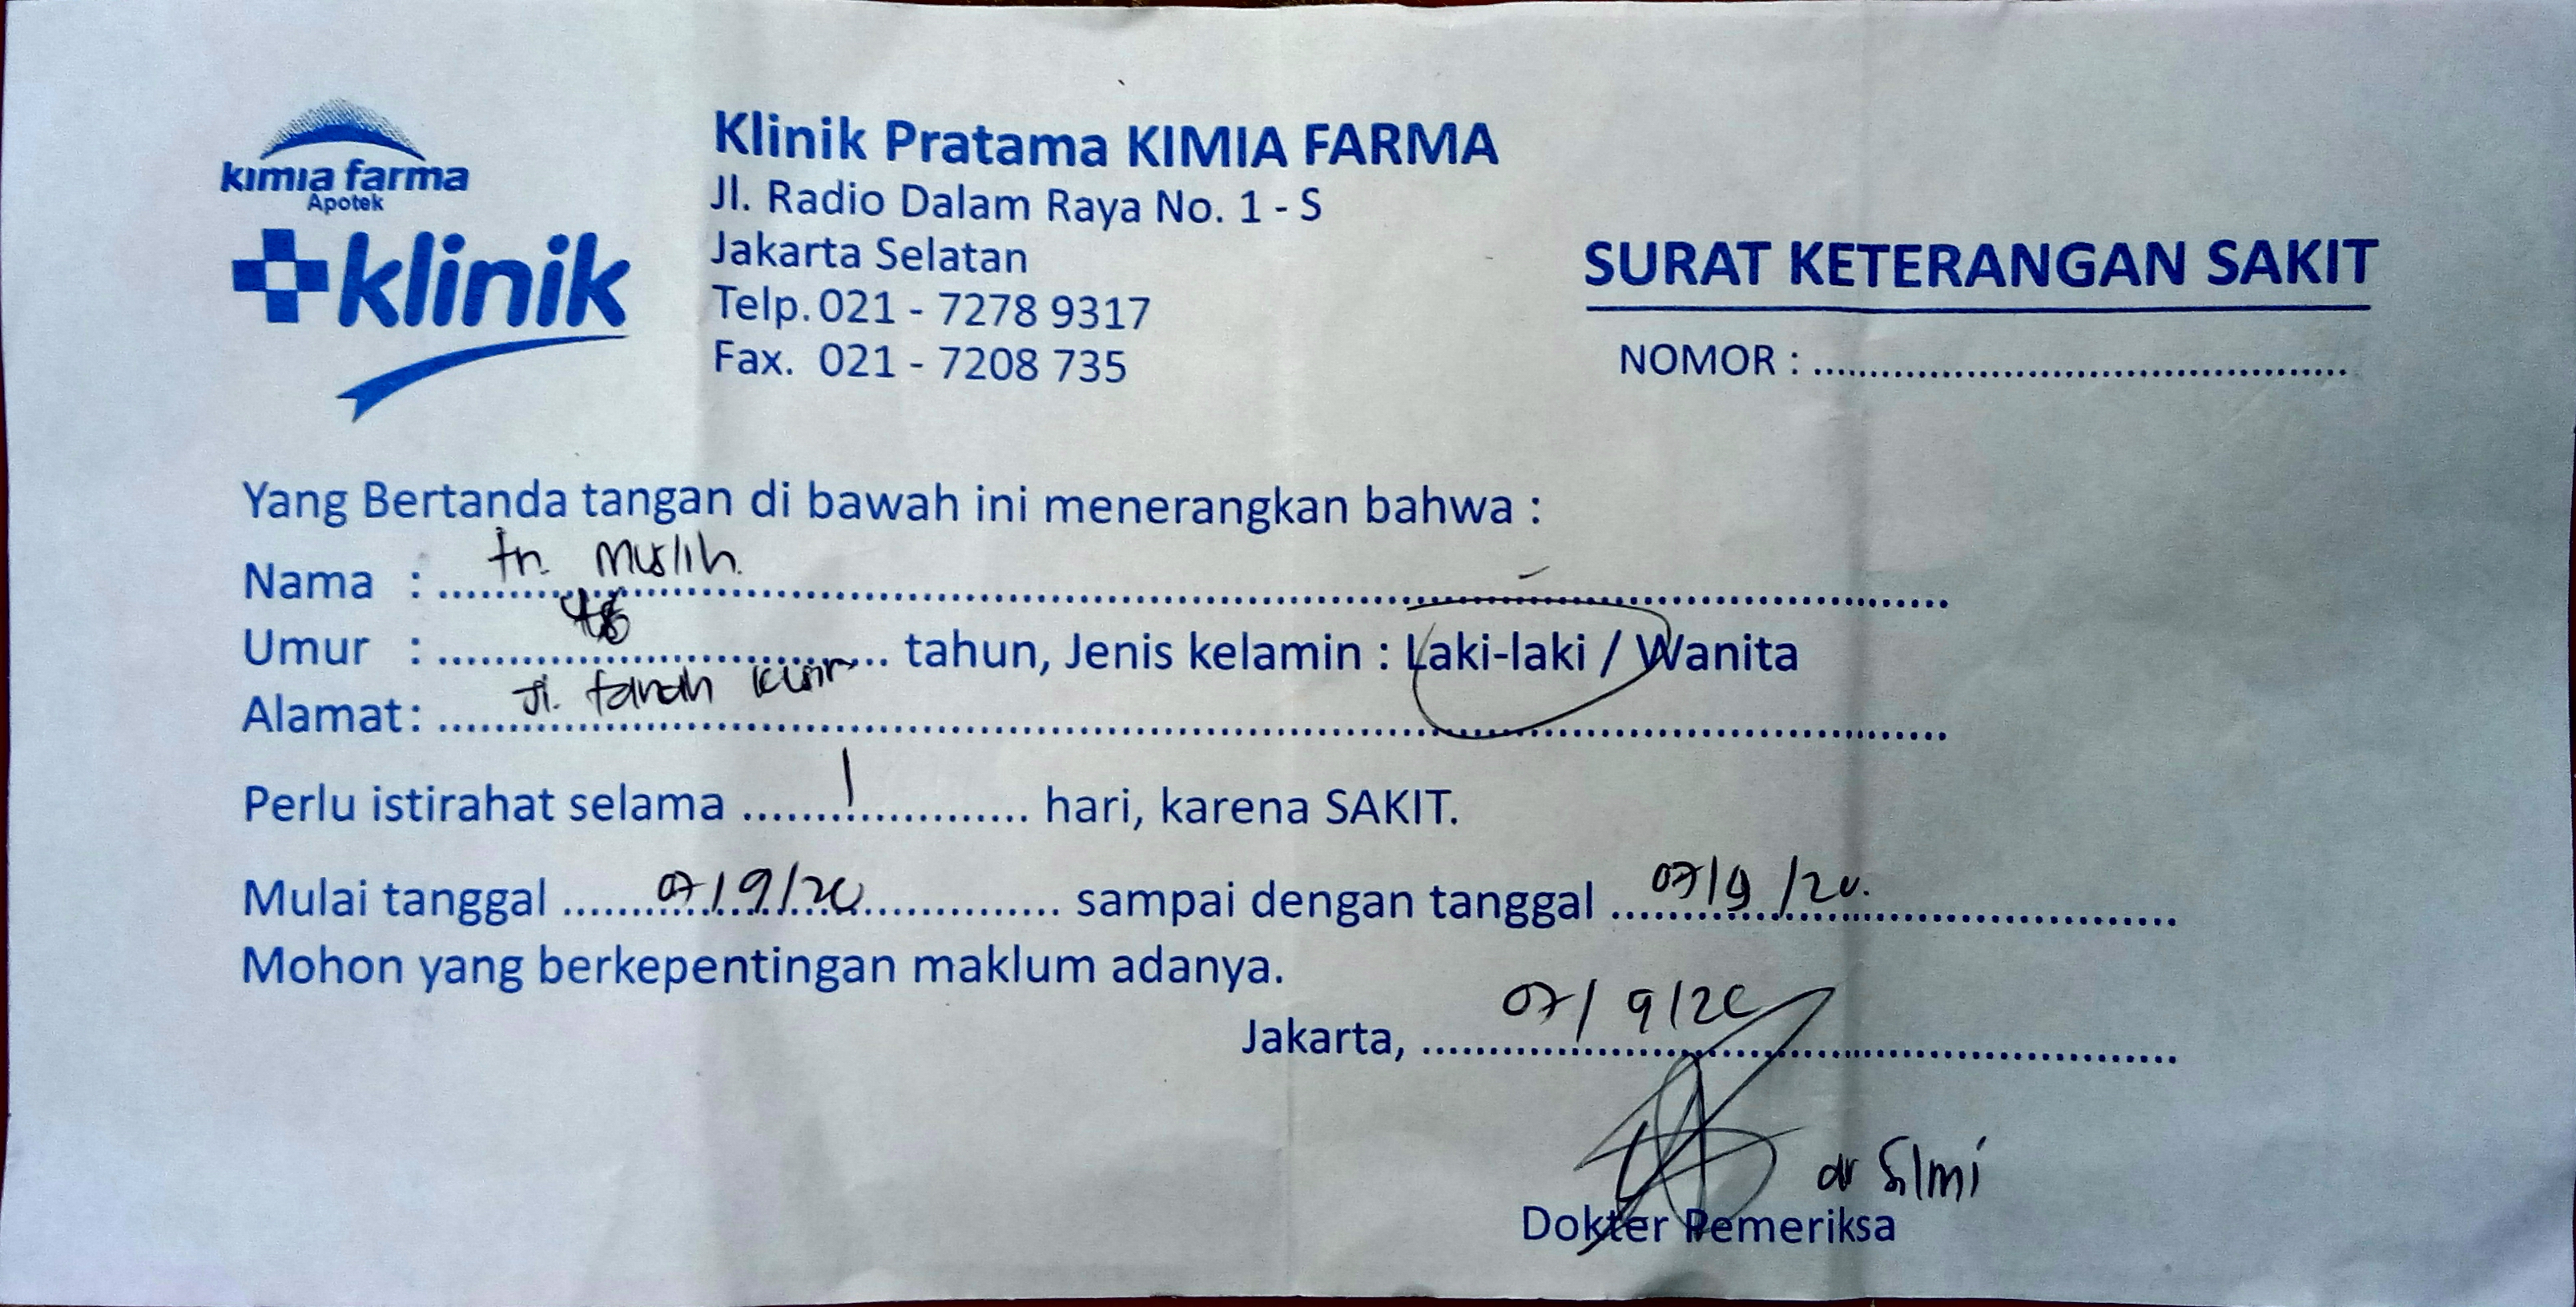 kimia farma
Apotek
klinik
Klinik Pratama KIMIA FARMA
Jl. Radio Dalam Raya No. 1 - S
Jakarta Selatan
Telp. 021 - 7278 9317
Fax. 021 - 7208 735
SURAT KETERANGAN SAKIT
NOMOR : ................................................
Yang Bertanda tangan di bawah ini menerangkan bahwa :
Nama : tn. Muslih.
Umur : tahun, Jenis kelamin : Laki-laki / Wanita
Alamat : Jl. tanah kusir
Perlu istirahat selama 1 hari, karena SAKIT.
Mulai tanggal 07/9/20 sampai dengan tanggal 07/9/20.
Mohon yang berkepentingan maklum adanya.
Jakarta, 07/9/20
dr Silmi
Dokter Pemeriksa